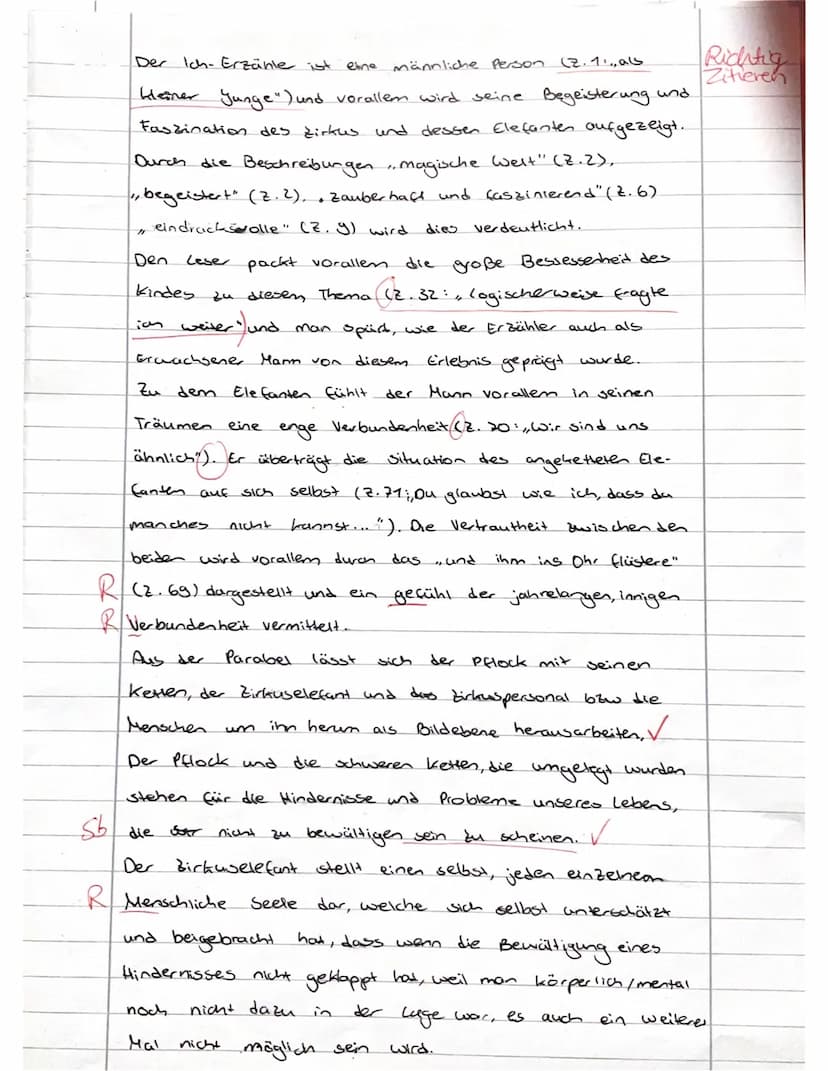 Der Ich-Erzähler ist eine männliche Person (Z.1: „als
kleiner Junge") und vorallem wird seine Begeisterung und
Richtig
Zitieren
Faszination des Zirkus und dessen Elefanten aufgezeigt.
Durch die Beschreibungen „magische Welt" (Z.2),
„begeistert" (Z.2), „zauberhaft und faszinierend" (Z.6)
„eindrucksvolle" (Z.9) wird dies verdeutlicht.
Den Leser packt vorallem die große Bessessenheit des
Kindes zu diesem Thema (Z.32: „Logischerweise fragte
ich weiter") und man spürt, wie der Erzähler auch als
Erwachsener Mann von diesem Erlebnis geprägt wurde.
Zu dem Elefanten fühlt der Mann vorallem in seinen
Träumen eine enge Verbundenheit (Z.70: „Wir sind uns
ähnlich"). Er überträgt die Situation des angeketteten Ele-
fanten auf sich selbst (Z.71: „Du glaubst wie ich, dass du
manches nicht kannst..."). Die Vertrautheit zwischen den
beiden wird vorallem durch das „und ihm ins Ohr flüstere"
R (Z.69) dargestellt und ein gefühl der jahrelangen, innigen
R Verbundenheit vermittelt.
Aus der Parabel lässt sich der Pflock mit seinen
Ketten, der Zirkuselefant und das Zirkuspersonal bzw die
Menschen um ihn herum als Bildebene herausarbeiten. ✓
Der Pflock und die schweren Ketten, die umgelegt wurden
stehen für die Hindernisse und Probleme unseres Lebens,
Sb die nicht zu bewältigen sein zu scheinen. ✓
Der Zirkuselefant stellt einen selbst, jeden einzelnen
R Menschliche Seele dar, welche sich selbst unterschätzt
und beigebracht hat, dass wenn die Bewältigung eines
Hindernisses nicht geklappt hat, weil man körperlich/mental
noch nicht dazu in der Lage war, es auch ein weiteres
Mal nicht möglich sein wird.